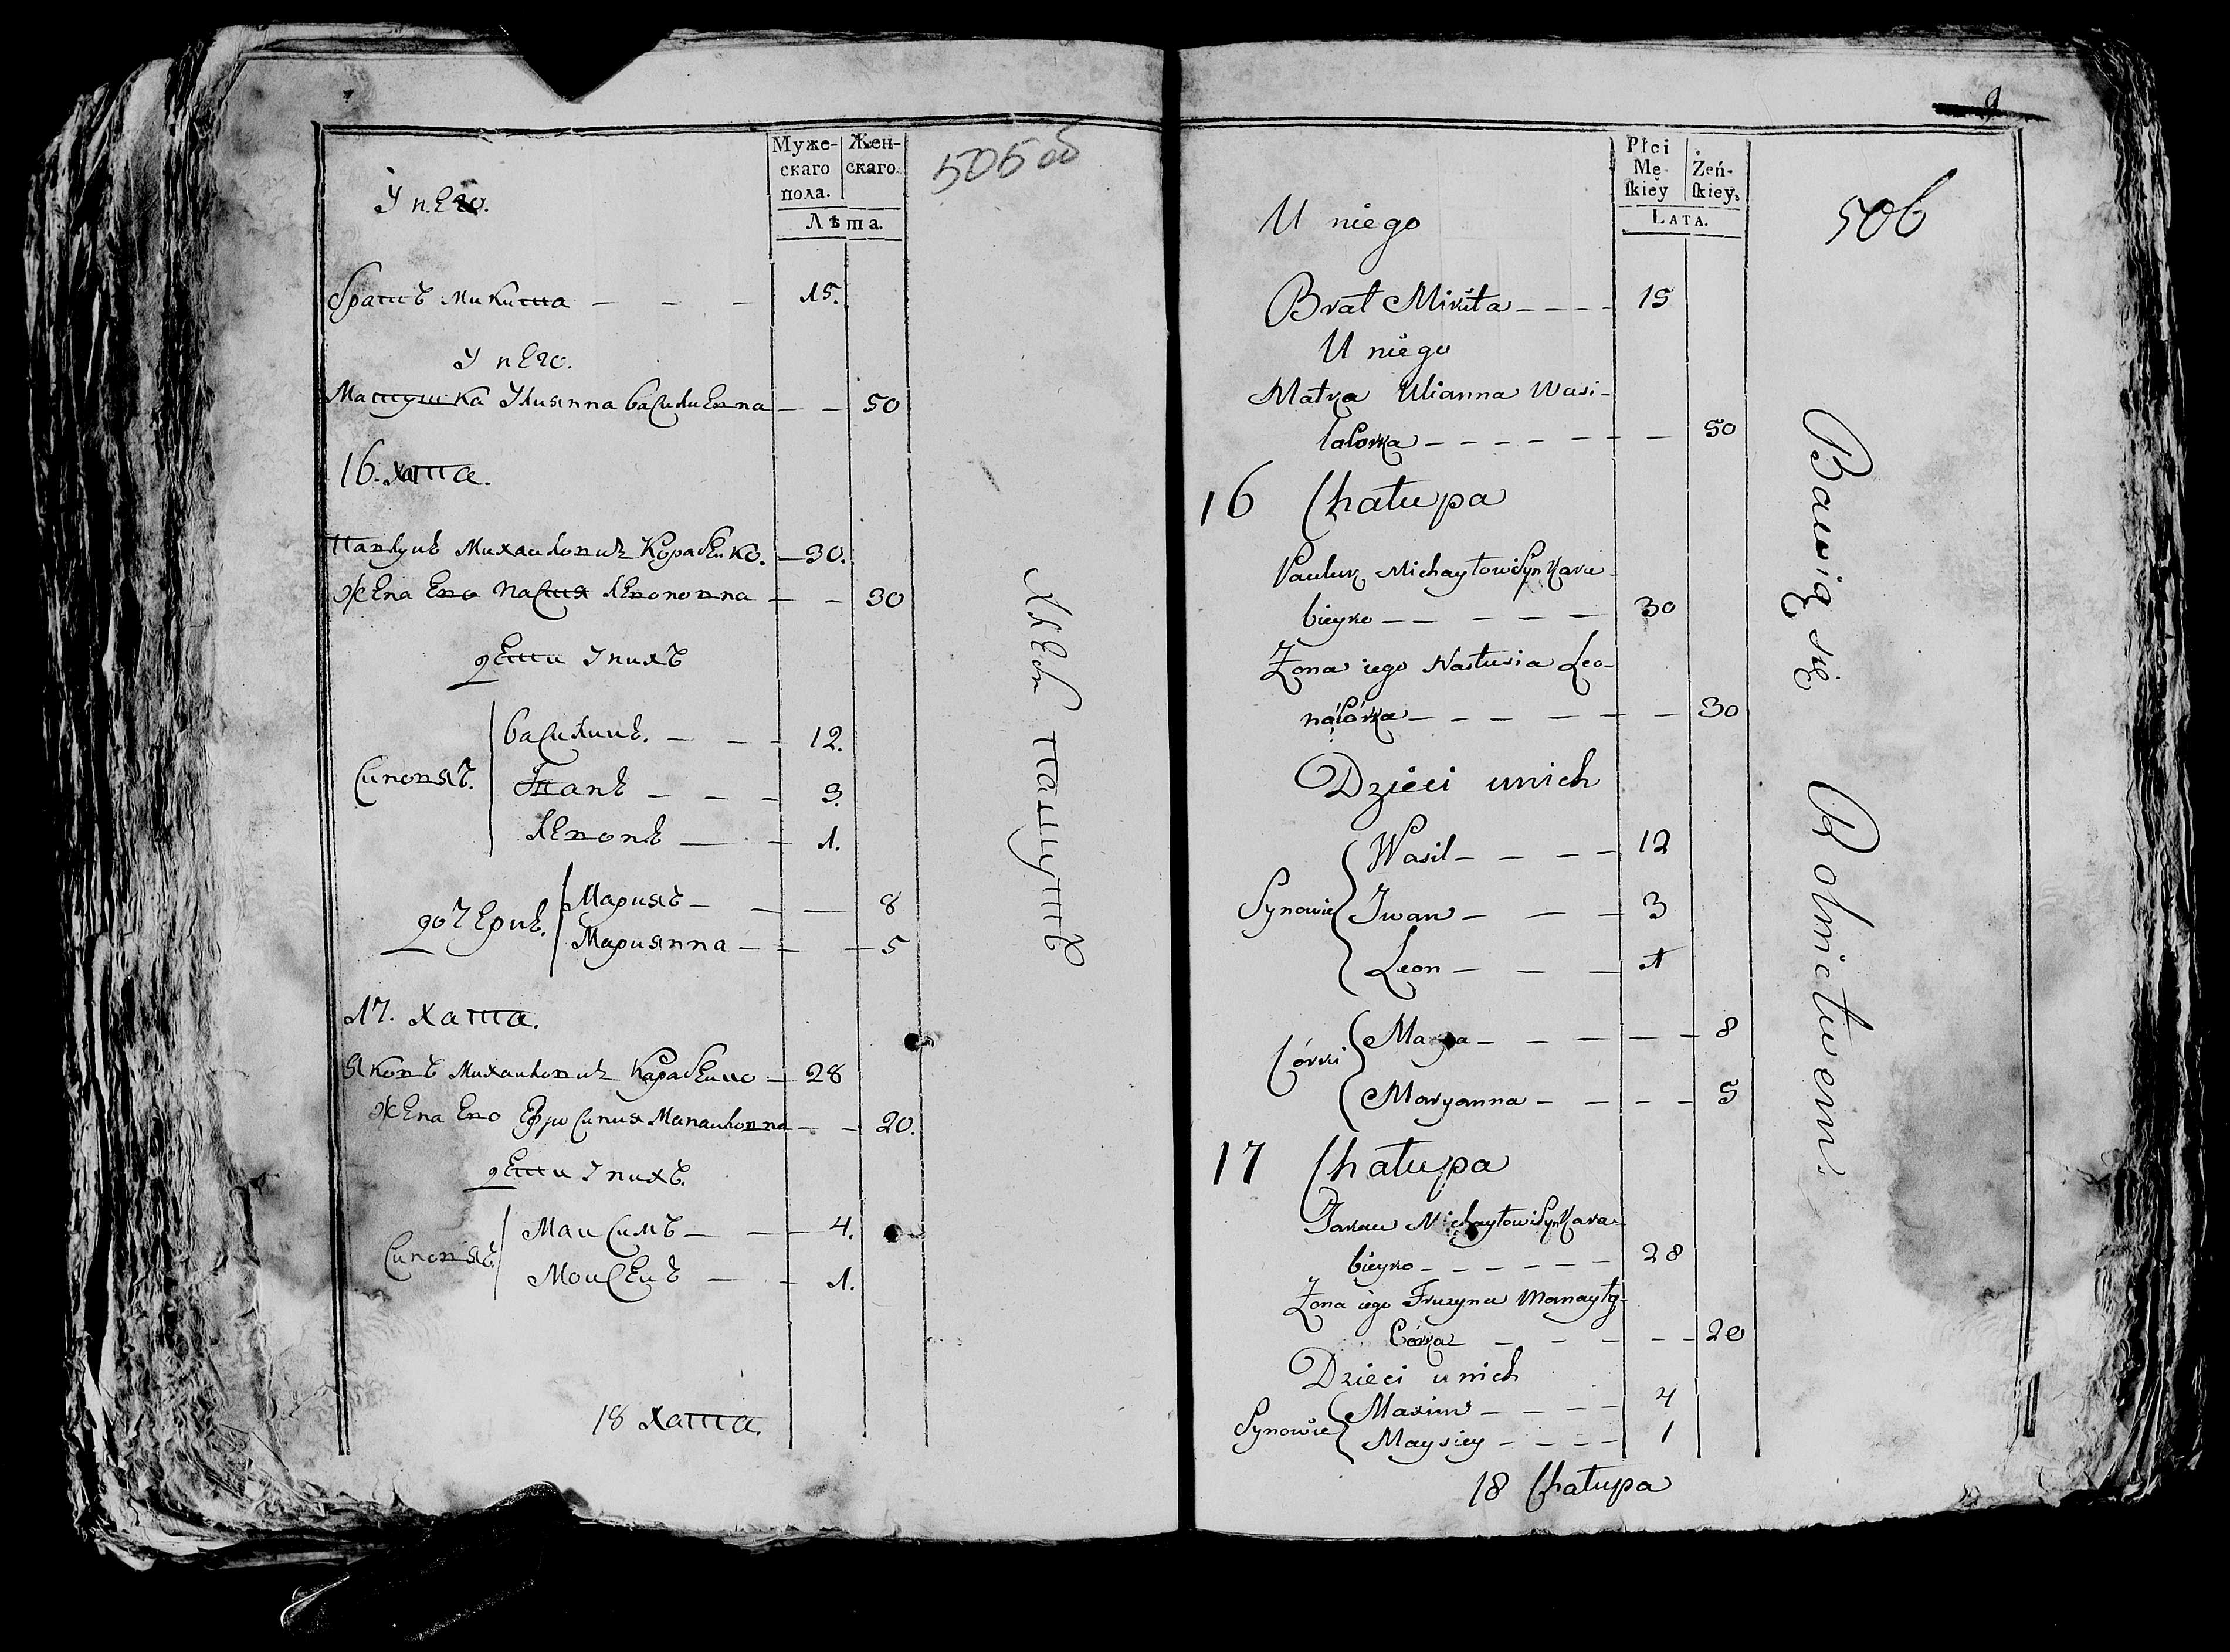 Муже-
скаго
пола.
Жен-
скаго.
Лѣта.
505 об
У него.
братъ Микита — — — 15.
У него.
Матушка Улиянна василиевна — — 50
16. хата.
Павлукъ Михаиловичъ Карабейко. — 30.
Жена Его Настя Левоновна — — 30
дети У нихъ
Синовя
василий. — — 12.
Іванъ — — — 3.
Левонъ — — 1.
дочери
Мария — — — 8
Мариянна — — — 5
17. хата.
Яковъ Михаиловичъ Карабейко — 28
Жена Его Ефросиния Манаиловна — — 20.
дети У нихъ.
Синовя
Максимъ — — 4.
Моисей — — 1.
18 хата.
Хлебопашутъ
Płci
Mę-
skiey
Żeń-
skiey.
LATA.
506
U niego
Brat Mikita — — — — 15
U niego
Matka Ulianna Wasi-
laCorka — — — — — — — 50
16 Chałupa
Pauluk MichayłowiSyn Kara-
bieyko — — — — — 30
Żona iego Nastusia Leo-
naCórka — — — — — — 30
Dzieci unich
Synowie
Wasil — — — — 12
Iwan — — — 3
Leon — — — 1
Córki
Marya — — — — — — 8
Maryanna — — — — 5
17 Chałupa
Jakau MichayłowiSyn Kara-
bieyko — — — — — — 28
Żona iego Fruzyna Manayło-
Córka — — — — — 20
Dzieci unich
Synowie
Maxim — — — — 4
Maysiey — — — — 1
18 Chałupa
Bawią się Rolnictwem.